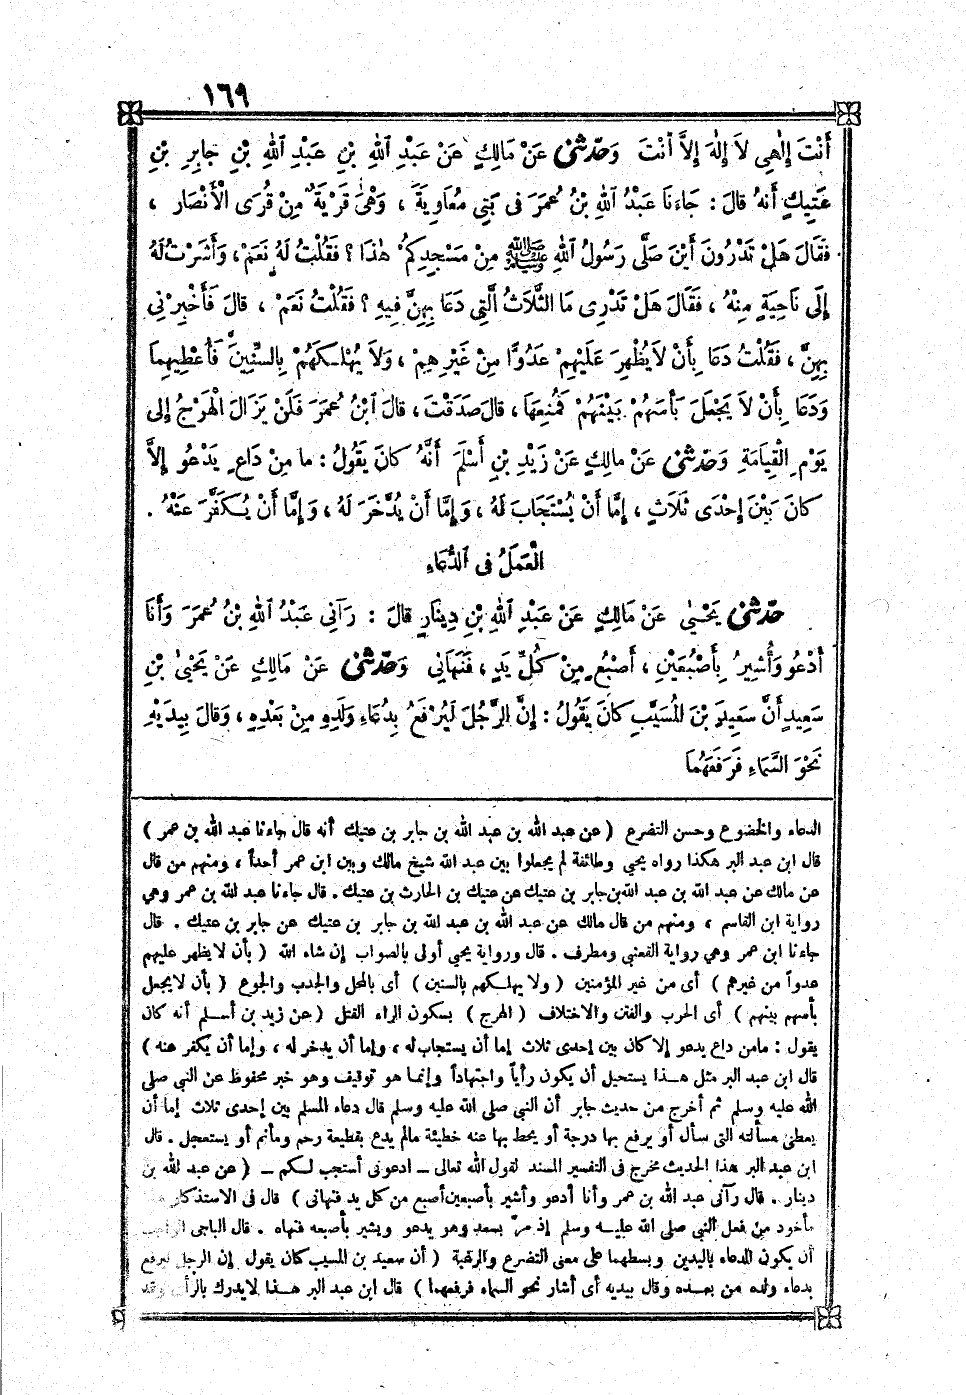 ١٦٩
أَنْتَ إِلٰهِي لاَ إِلٰهَ إِلاَّ أَنْتَ وَحَدَّثَنِي عَنْ مَالِكٍ عَنْ عَبْدِ اللهِ بْنِ عَبْدِ اللهِ بْنِ جَابِرِ بْنِ
عَتِيكٍ أَنهُ قالَ : جَاءَنَا عَبْدُ اللهِ بْنُ عُمَرَ فى بَنِي مُعَاوِيَةَ ، وَهْىَ قَرْيَةٌ مِنْ قُرَى الْأَنْصَارِ ،
فقَالَ هَلْ تَدْرُونَ أَيْنَ صَلَّى رَسُولُ اللهِ ﷺ مِنْ مَسْجِدِكُمْ هٰذَا ؟ فقُلْتُ لَهُ نَعَمْ، وَأَشَرْتُ لَهُ
إِلَى نَاحِيَةٍ مِنْهُ ، فَقَالَ هَلْ تَدْرِى مَا الثَّلاَثُ الَّتِي دَعَا بِهِنَّ فِيهِ ؟ فَقُلْتُ نَعَمْ ، قالَ فَأَخْبِرْنِى
بِهِنَّ ، فَقُلْتُ دَعَا بِأَنْ لاَ يُظْهِرَ عَلَيْهِمْ عَدُوًّا مِنْ غَيْرِهِمْ ، وَلاَ يُهْلِكَهُمْ بِالسِّنِينَ فَأُعْطِيهِمَا
وَدَعَا بِأَنْ لاَ يَجْعَلَ بَأْسَهُمْ بَيْنَهُمْ فَمُنِعَهَا ، قالَ صَدَقْتَ ، قالَ ابْنُ عُمَرَ فَلَنْ يَزَالَ الْهَرْجُ إِلى
يَوْمِ الْقِيَامَةِ وَحَدَّثَنِي عَنْ مالِكٍ عَنْ زَيْدِ بْنِ أَسْلَمَ أَنَّهُ كانَ يَقُولُ : ما مِنْ دَاعٍ يَدْعُو إِلاَّ
كانَ بَيْنَ إِحْدَى ثَلاَثٍ ، إِمَّا أَنْ يُسْتَجَابَ لَهُ ، وَإِمَّا أَنْ يُدَّخَرَ لَهُ ، وَإِمَّا أَنْ يُكَفَّرَ عَنْهُ .
الْعَمَلُ فى الدُّعَاءِ
حَدَّثَنِي يَحْيٰى عَنْ مَالِكٍ عَنْ عَبْدِ اللهِ بْنِ دِينَارٍ قالَ : رَآنِى عَبْدُ اللهِ بْنُ عُمَرَ وَأَنَا
أَدْعُو وَأُشِيرُ بِأَصْبُعَيْنِ ، أَصْبُعٍ مِنْ كُلِّ يَدٍ ، فَنَهَانِى وَحَدَّثَنِي عَنْ مَالِكٍ عَنْ يَحْيىٰ بْنِ
سَعِيدٍ أَنَّ سَعِيدَ بْنَ الْمُسَيَّبِ كانَ يَقُولُ : إِنَّ الرَّجُلَ لَيُرْفَعُ بِدُعَاءِ وَلَدِهِ مِنْ بَعْدِهِ ، وَقالَ بِيَدَيْهِ
نَحْوَ السَّمَاءِ فَرَفَعَهُمَا
الدعاء والخضوع وحسن التضرع (عن عبد الله بن عبد الله بن جابر بن عتيك أنه قال جاءنا عبد الله بن عمر)
قال ابن عبد البر هكذا رواه يحيى وطائفة لم يجعلوا بين عبد الله شيخ مالك وبين ابن عمر أحداً ، ومنهم من قال
عن مالك عن عبد الله بن عبد الله بن جابر بن عتيك عن عتيك بن الحارث بن عتيك . قال جاءنا عبد الله بن عمر وهي
رواية ابن القاسم ، ومنهم من قال مالك عن عبد الله بن عبد الله بن جابر بن عتيك عن جابر بن عتيك . قال
جاءنا ابن عمر وهي رواية القعنبي ومطرف . قال ورواية يحيى أولى بالصواب إن شاء الله (بأن لا يظهر عليهم
عدواً من غيرهم) أى من غير المؤمنين (ولا يهلكهم بالسنين) أى بالمحل والجدب والجوع (بأن لا يجعل
بأسهم بينهم) أى الحرب والفتن والاختلاف (الهرج) بسكون الراء القتل (عن زيد بن أسلم أنه كان
يقول : مامن داع يدعو إلا كان بين إحدى ثلاث إما أن يستجاب له ، وإما أن يدخر له ، وإما أن يكفر عنه)
قال ابن عبد البر مثل هذا يستحيل أن يكون رأياً واجتهاداً وإنما هو توقيف وهو خبر محفوظ عن النبي صلى
الله عليه وسلم ثم أخرج من حديث جابر أن النبي صلى الله عليه وسلم قال دعاء المسلم بين إحدى ثلاث إما أن
يعطى مسألته التى سأل أو يرفع بها درجة أو يحط بها عنه خطيئة مالم يدع بقطيعة رحم ومأثم أو يستعجل . قال
ابن عبد البر هذا الحديث مخرج فى التفسير المسند لقول الله تعالى ــ ادعونى أستجب لكم ــ (عن عبد الله بن
دينار . قال رآنى عبد الله بن عمر وأنا أدعو وأشير بأصبعين أصبع من كل يد فنهانى) قال فى الاستذكار
مأخود من فعل النبي صلى الله عليه وسلم إذ مرّ بسعد وهو يدعو ويشير بأصبعه فنهاه . قال الباجى
أن يكون الدعاء باليدين وبسطهما على معنى التضرع والرغبة (أن سعيد بن المسيب كان يقول إن الرجل ليرفع
بدعاء ولده من بعده وقال بيديه أى أشار نحو السماء فرفعهما) قال ابن عبد البر هذا لا يدرك بالرأى وقد